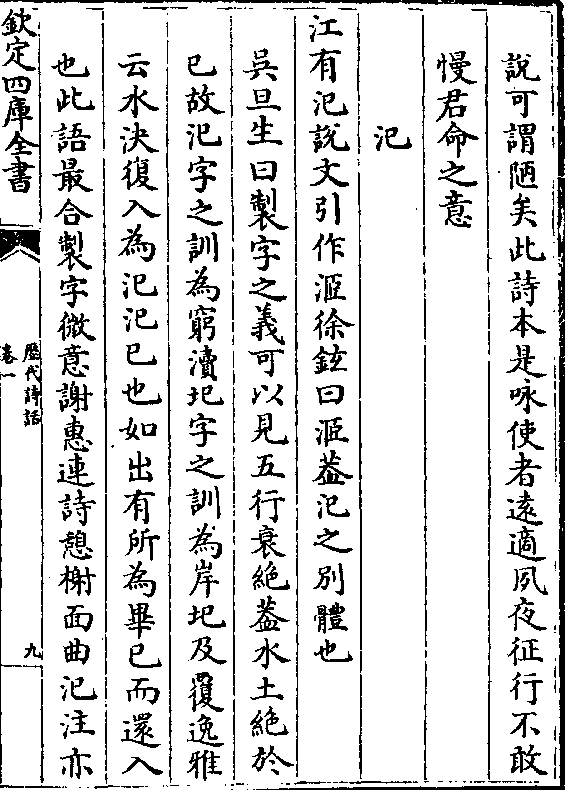 說可謂陋矣此詩本是咏使者遠適夙夜征行不敢
慢君命之意
汜
江有汜說文引作洍徐鉉曰洍葢汜之別體也
吳旦生曰製字之義可以見五行衰絶葢水土絶於
巳故汜字之訓為窮瀆圯字之訓為岸圯及覆逸雅
云水決復入為汜汜巳也如出有所為畢巳而還入
也此語最合製字微意謝惠連詩憇榭面曲汜注亦
欽定四庫全書
歴代詩話
卷一
九